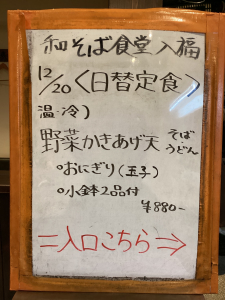 和そば食堂入福
12/20〈日替定食〉
温・冷)
野菜かきあげ天 そば
うどん
○おにぎり(玉子)
○小鉢2品付
¥880-
=入口こちら⇒